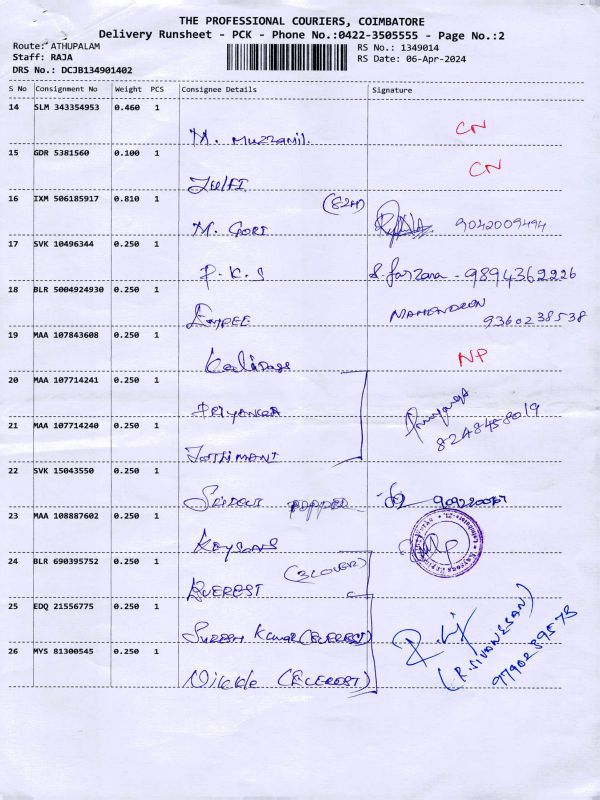 THE PROFESSIONAL COURIERS, COIMBATORE
Delivery Runsheet - PCK - Phone No.:0422-3505555 - Page No.:2
Route: ATHUPALAM
RS No.: 1349014
Staff: RAJA
RS Date: 06-Apr-2024
DRS No.: DCJB134901402
S No Consignment No Weight PCS Consignee Details Signature
14 SLM 343354953 0.460 1
M. Muzzamil. CN
15 GDR 5381560 0.100 1
ZULFI CN
16 IXM 506185917 0.810 1
M. GORI 9042009494
17 SVK 10496344 0.250 1
P.K.S S. farzana - 9894362226
18 BLR 5004924930 0.250 1
MAHENDREN
9360238538
19 MAA 107843608 0.250 1
NP
20 MAA 107714241 0.250 1
PRIYANKA
21 MAA 107714240 0.250 1
JOTHIMANI 8248458019
22 SVK 15043550 0.250 1
23 MAA 108887602 0.250 1
KAYSONS
24 BLR 690395752 0.250 1
(3 COVER)
EVEREST
25 EDQ 21556775 0.250 1
SURESH Kumar (EVEREST)
26 MYS 81300545 0.250 1
(R. SIVANESAN)
9790259573
(EVEREST)